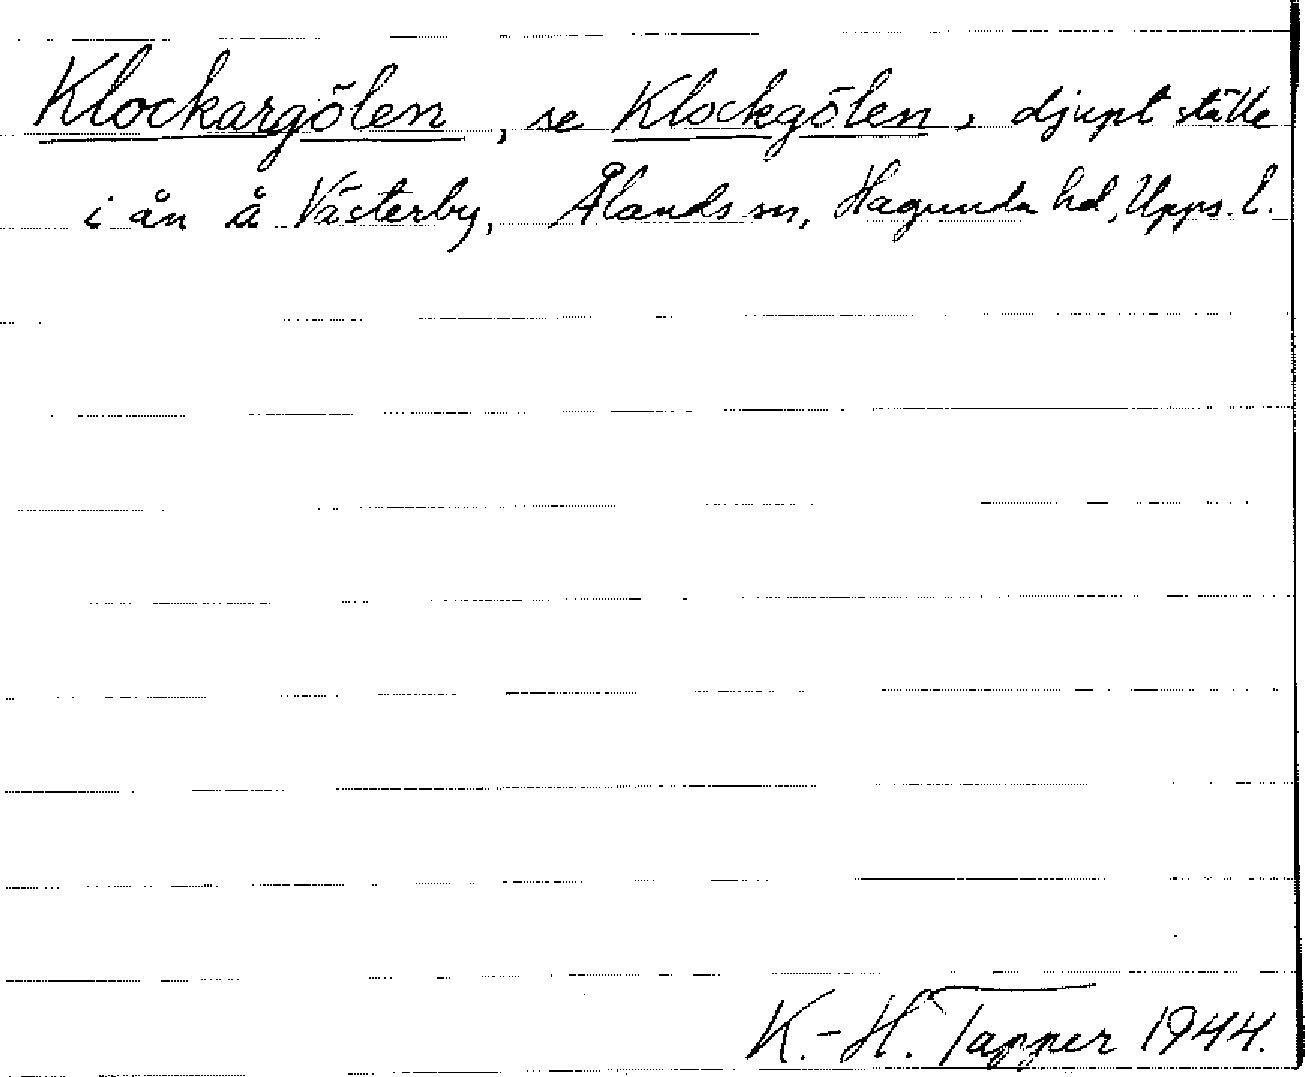 Klockargölen, se Klockgölen, djupt ställe
i ån å Västerby, Ålands sn, Hagunda hd, Upps. l.
K.-H. Tapper 1944.